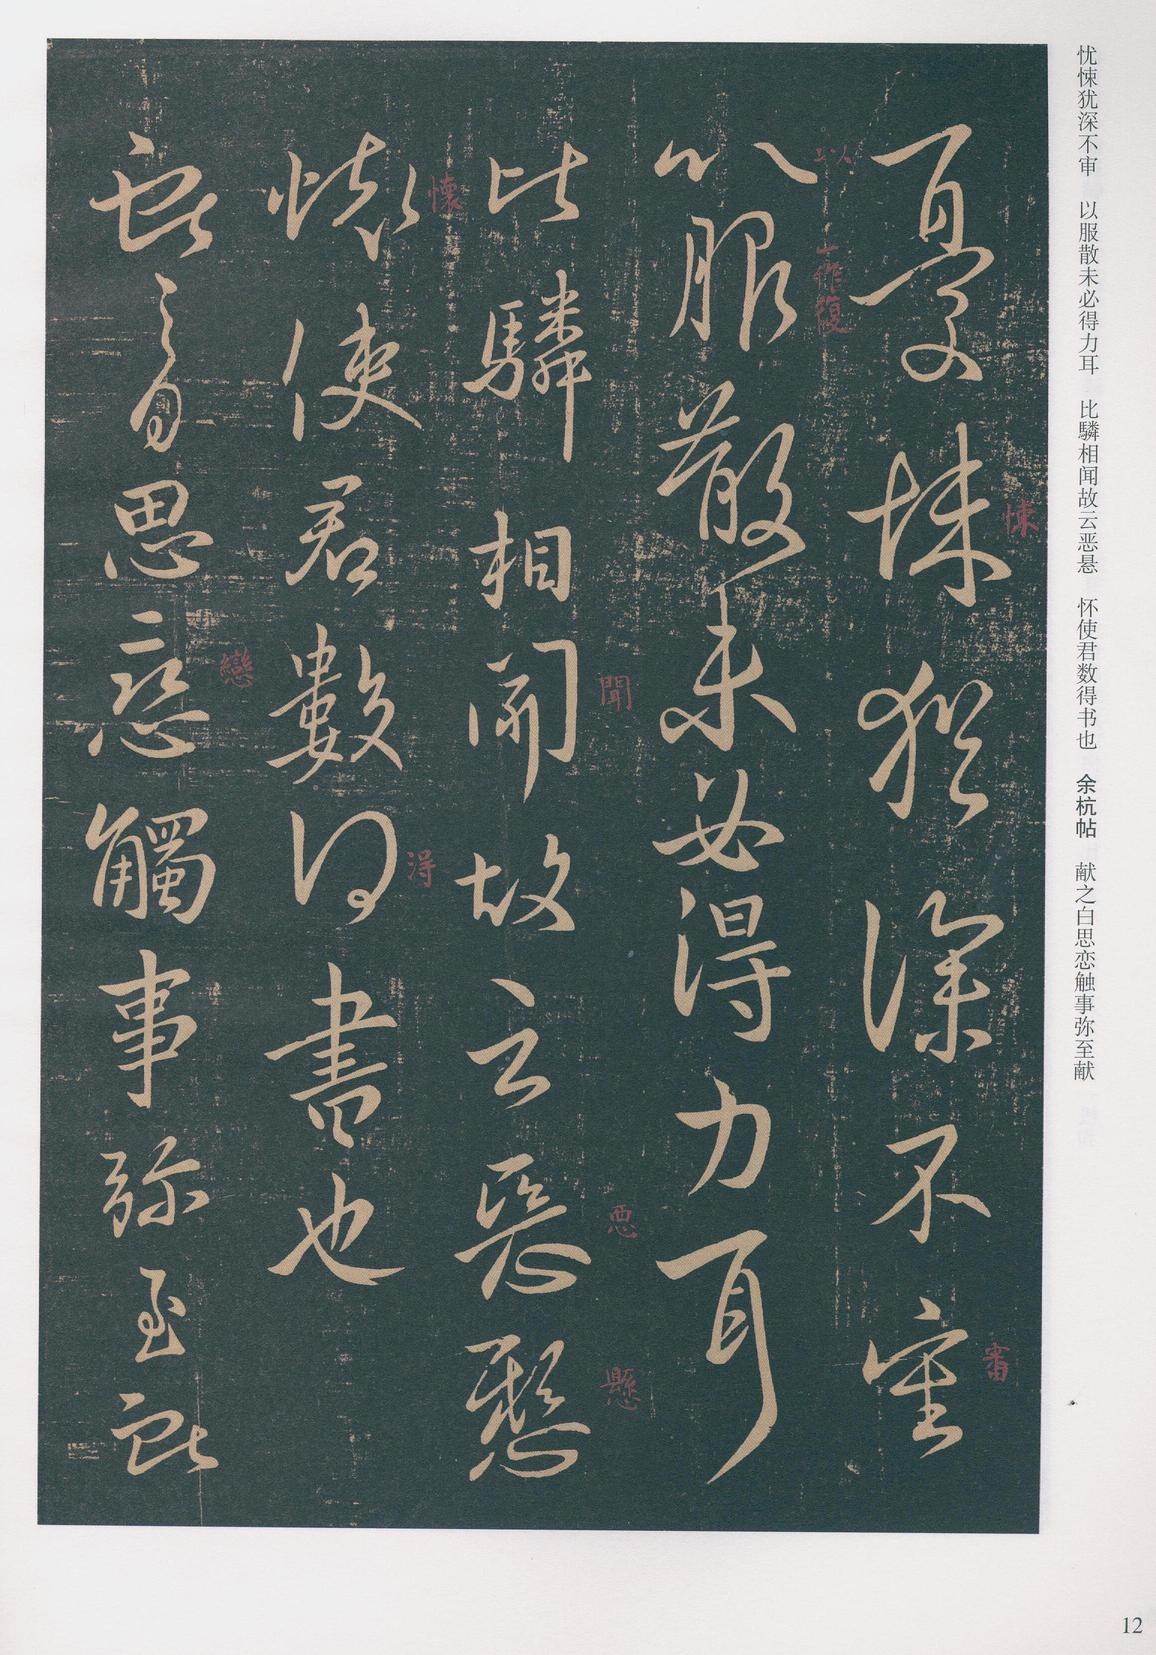 忧悚犹深不审　以服散未必得力耳　比驎相闻故云恶悬　怀使君数得书也　余杭帖　献之白思恋触事弥至献
憂悚猶深不審
悚
審
以服散未必得力耳
以
一作復
比驎相聞故云惡懸
聞
惡
懸
懷使君數得書也
懷
得
獻之白思戀觸事弥至獻
戀
12